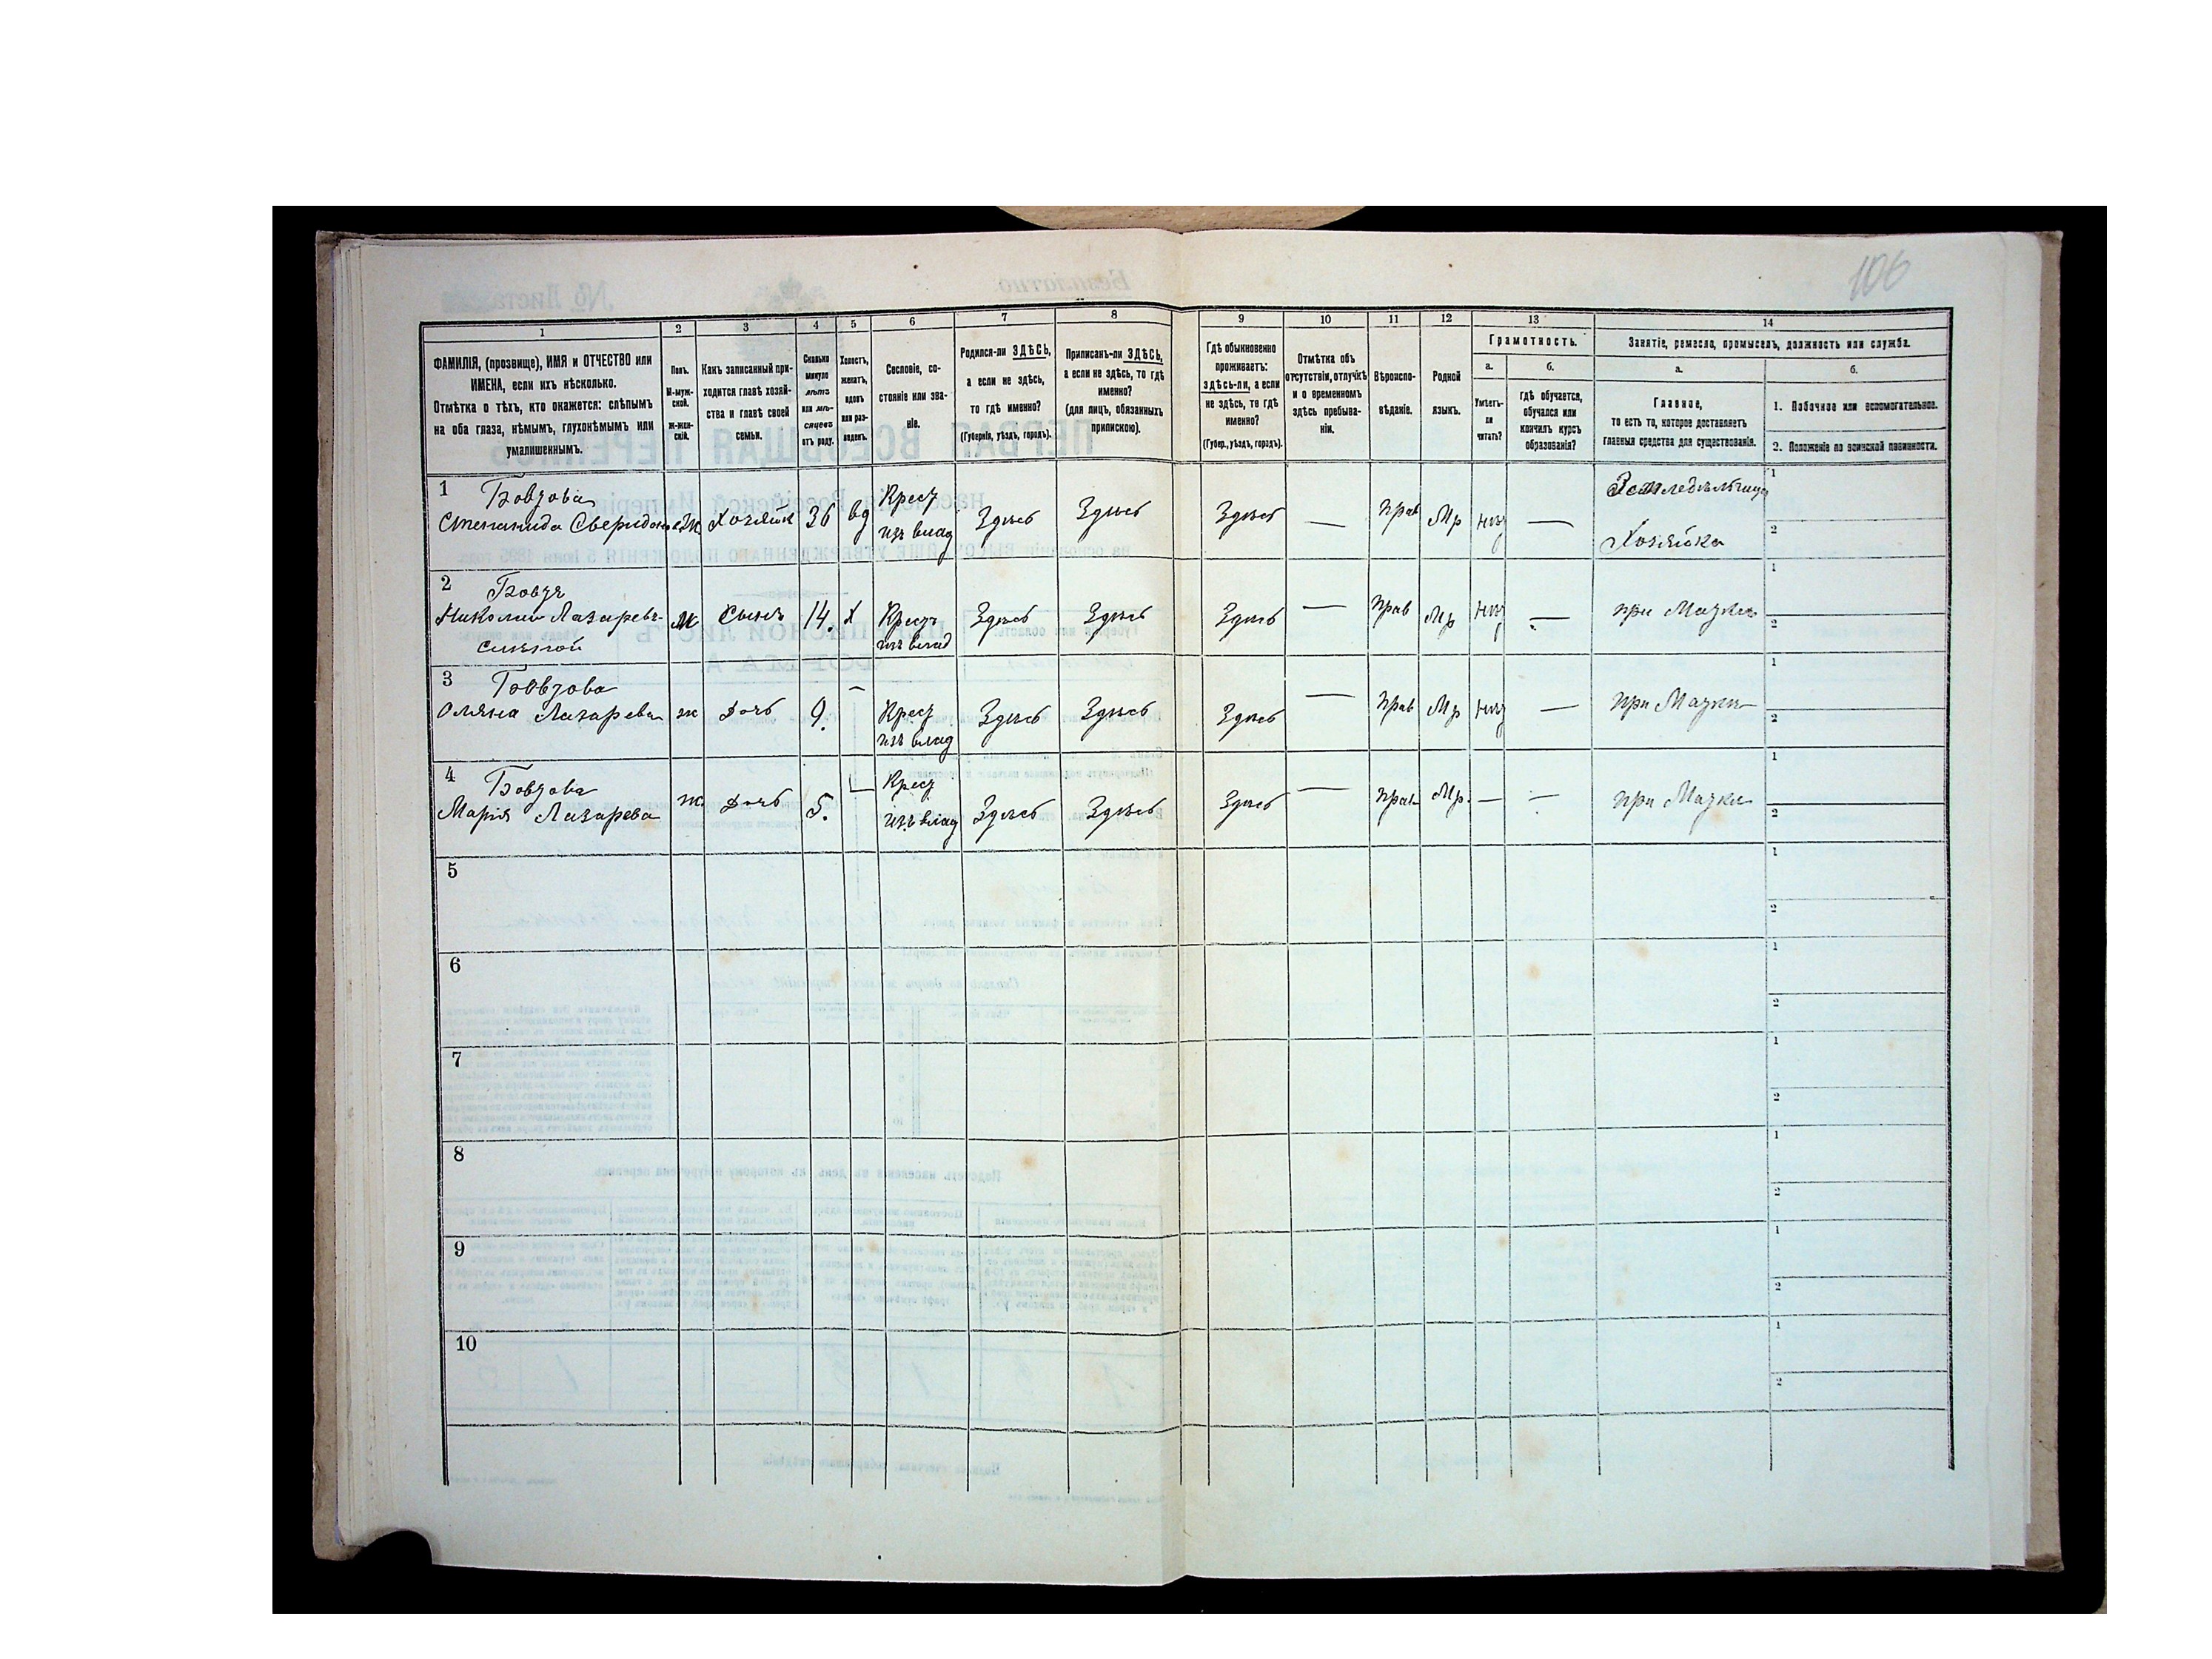 106
1
2
3
4
5
6
7
8
9
10
11
12
13
14
ФАМИЛІЯ, (прозвище), ИМЯ и ОТЧЕСТВО или
ИМЕНА, если ихъ нѣсколько.
Отмѣтка о тѣхъ, кто окажется: слѣпымъ
на оба глаза, нѣмымъ, глухонѣмымъ или
умалишеннымъ.
Полъ.
М-муж-
ской.
Ж-жен-
скій.
Какъ записанный при-
ходится главѣ хозяй-
ства и главѣ своей
семьи.
Сколько
минуло
лѣтъ
или мѣ-
сяцевъ
отъ роду.
Холостъ,
женатъ,
вдовъ
или раз-
веденъ.
Сословіе, со-
стояніе или зва-
ніе.
Родился-ли ЗДѢСЬ,
а если не здѣсь,
то гдѣ именно?
(Губернія, уѣздъ, городъ).
Приписанъ-ли ЗДѢСЬ,
а если не здѣсь, то гдѣ
именно?
(для лицъ, обязанныхъ
припискою).
Гдѣ обыкновенно
проживаетъ:
здѣсь-ли, а если
не здѣсь, то гдѣ
именно?
(Губер., уѣздъ, городъ).
Отмѣтка объ
отсутствіи, отлучкѣ
и о временномъ
здѣсь пребыва-
ніи.
Вѣроиспо-
вѣданіе.
Родной
языкъ.
Грамотность.
а.
Умѣетъ-
ли
читать?
б.
гдѣ обучается,
обучался или
кончилъ курсъ
образованія?
Занятіе, ремесло, промыселъ, должность или служба.
а.
Главное,
то есть то, которое доставляетъ
главныя средства для существованія.
б.
1. Побочное или вспомогательное.
2. Положеніе по воинской повинности.
1 Бовзова
Степанида Сверидон Ж Хозяйк 36 вд Крест из влад Здѣсь Здѣсь Здѣсь — прав Мр — Земледѣльица
Хозяйка
1
2
2 Бовзъ
Николай Лазаревъ м Сынъ 14. х Крест изъ влад Здѣсь Здѣсь Здѣсь — прав Мр — при
слѣпой
1
2
3 Бовзова
Лазарева ж дочь 9. — Крест изъ влад Здѣсь Здѣсь Здѣсь — прав Мр — при
1
2
4 Бовзова
Марія Лазарева ж. дочь 5. Крест изъ влад Здѣсь Здѣсь Здѣсь — прав Мр. — — при
1
2
5
1
2
6
1
2
7
1
2
8
1
2
9
1
2
10
1
2